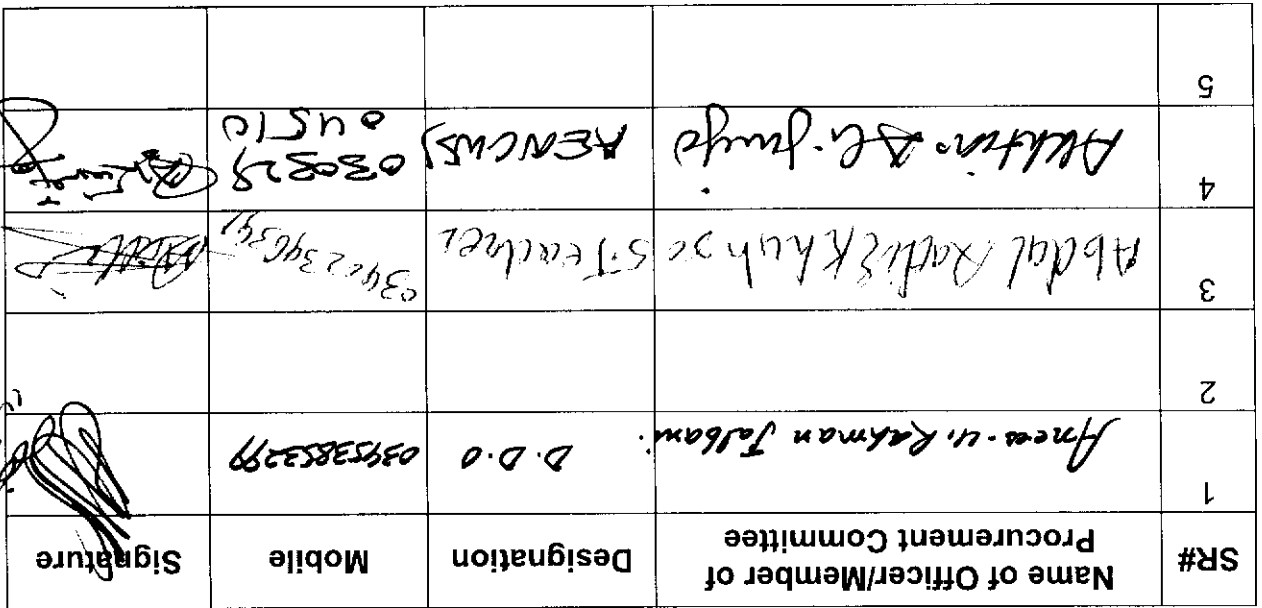 SR# Name of Officer/Member of Procurement Committee Designation Mobile Signature
1 Anees-u-Rahman Jalbani. D.D.O 03453853299
2
3 Abdul Khuhro S.Teacher 03402340341
4 Akhtiar Ali Junejo AEN(WS) 030828 04510
5